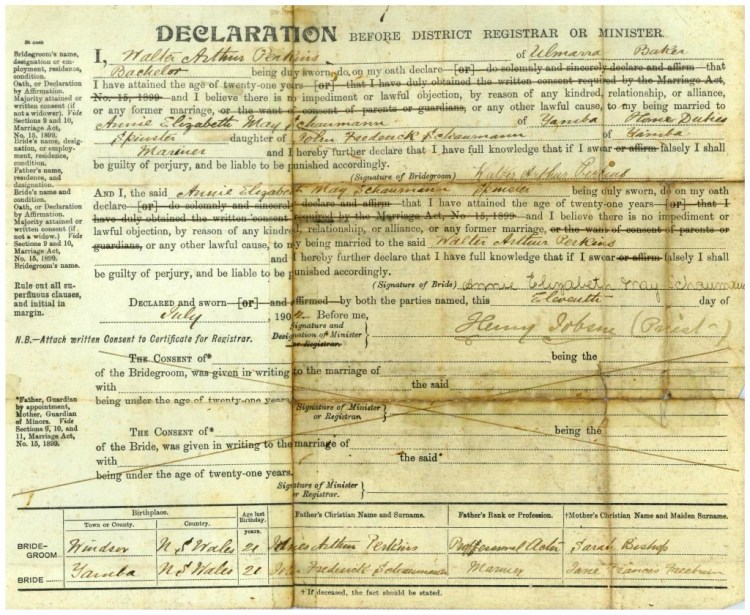 DECLARATION BEFORE DISTRICT REGISTRAR OR MINISTER.
Bridegroom's name, designation or employment, residence, condition.
Oath, or Declaration by Affirmation.
Majority attained or written consent (if not a widower). Vide Sections 9 and 10, Marriage Act, No. 15, 1899.
Bride's name, designation, or employment, residence, condition.
Father's name, residence, and designation.
I, Walter Arthur Perkins of Ulmarra Baker
Bachelor being duly sworn, do, on my oath declare [or] do solemnly and sincerely declare and affirm that
I have attained the age of twenty-one years [or] that I have duly obtained the written consent required by the Marriage Act,
No. 15, 1899 and I believe there is no impediment or lawful objection, by reason of any kindred, relationship, or alliance,
or any former marriage, or the want of consent of parents or guardians, or any other lawful cause, to my being married to
Annie Elizabeth May Schaumann of Yamba Home Duties
Spinster daughter of John Frederick Schaumann of Yamba
Mariner and I hereby further declare that I have full knowledge that if I swear or affirm falsely I shall
be guilty of perjury, and be liable to be punished accordingly.
(Signature of Bridegroom) Walter Arthur Perkins
Bride's name and condition.
Oath, or Declaration by Affirmation.
Majority attained or written consent (if not a widow.) Vide Sections 9 and 10, Marriage Act, No. 15, 1899.
Bridegroom's name.
And I, the said Annie Elizabeth May Schaumann Spinster being duly sworn, do on my oath
declare [or] do solemnly and sincerely declare and affirm that I have attained the age of twenty-one years [or] that I
have duly obtained the written consent required by the Marriage Act, No. 15, 1899 and I believe there is no impediment or
lawful objection, by reason of any kindred, relationship, or alliance, or any former marriage, or the want of consent of parents or
guardians, or any other lawful cause, to my being married to the said Walter Arthur Perkins
and I hereby further declare that I have full knowledge that if I swear or affirm falsely I shall
be guilty of perjury, and be liable to be punished accordingly.
(Signature of Bride) Annie Elizabeth May Schaumann
Rule out all superfluous clauses, and initial in margin.
Declared and sworn [or] and affirmed by both the parties named, this Eleventh day of
July, 190 Before me,
Signature and Designation of Minister or Registrar. Henry (Priest)
N.B.—Attach written Consent to Certificate for Registrar.
The Consent of* being the
of the Bridegroom, was given in writing to the marriage of
with the said
being under the age of twenty-one years
Signature of Minister or Registrar.
*Father, Guardian by appointment, Mother, Guardian of Minors. Vide Sections 9, 10, and 11, Marriage Act, No. 15, 1899.
The Consent of* being the
of the Bride, was given in writing to the marriage of
with the said*
being under the age of twenty-one years.
Signature of Minister or Registrar.
Birthplace. Age last Birthday. Father's Christian Name and Surname. Father's Rank or Profession. †Mother's Christian Name and Maiden Surname.
Town or County. Country. years.
BRIDEGROOM Windsor N S Wales 21 Arthur Perkins Proffessional Actor Sarah Bishop
BRIDE Yamba N S Wales 21 Frederick Schaumann Mariner Jane Frances
† If deceased, the fact should be stated.